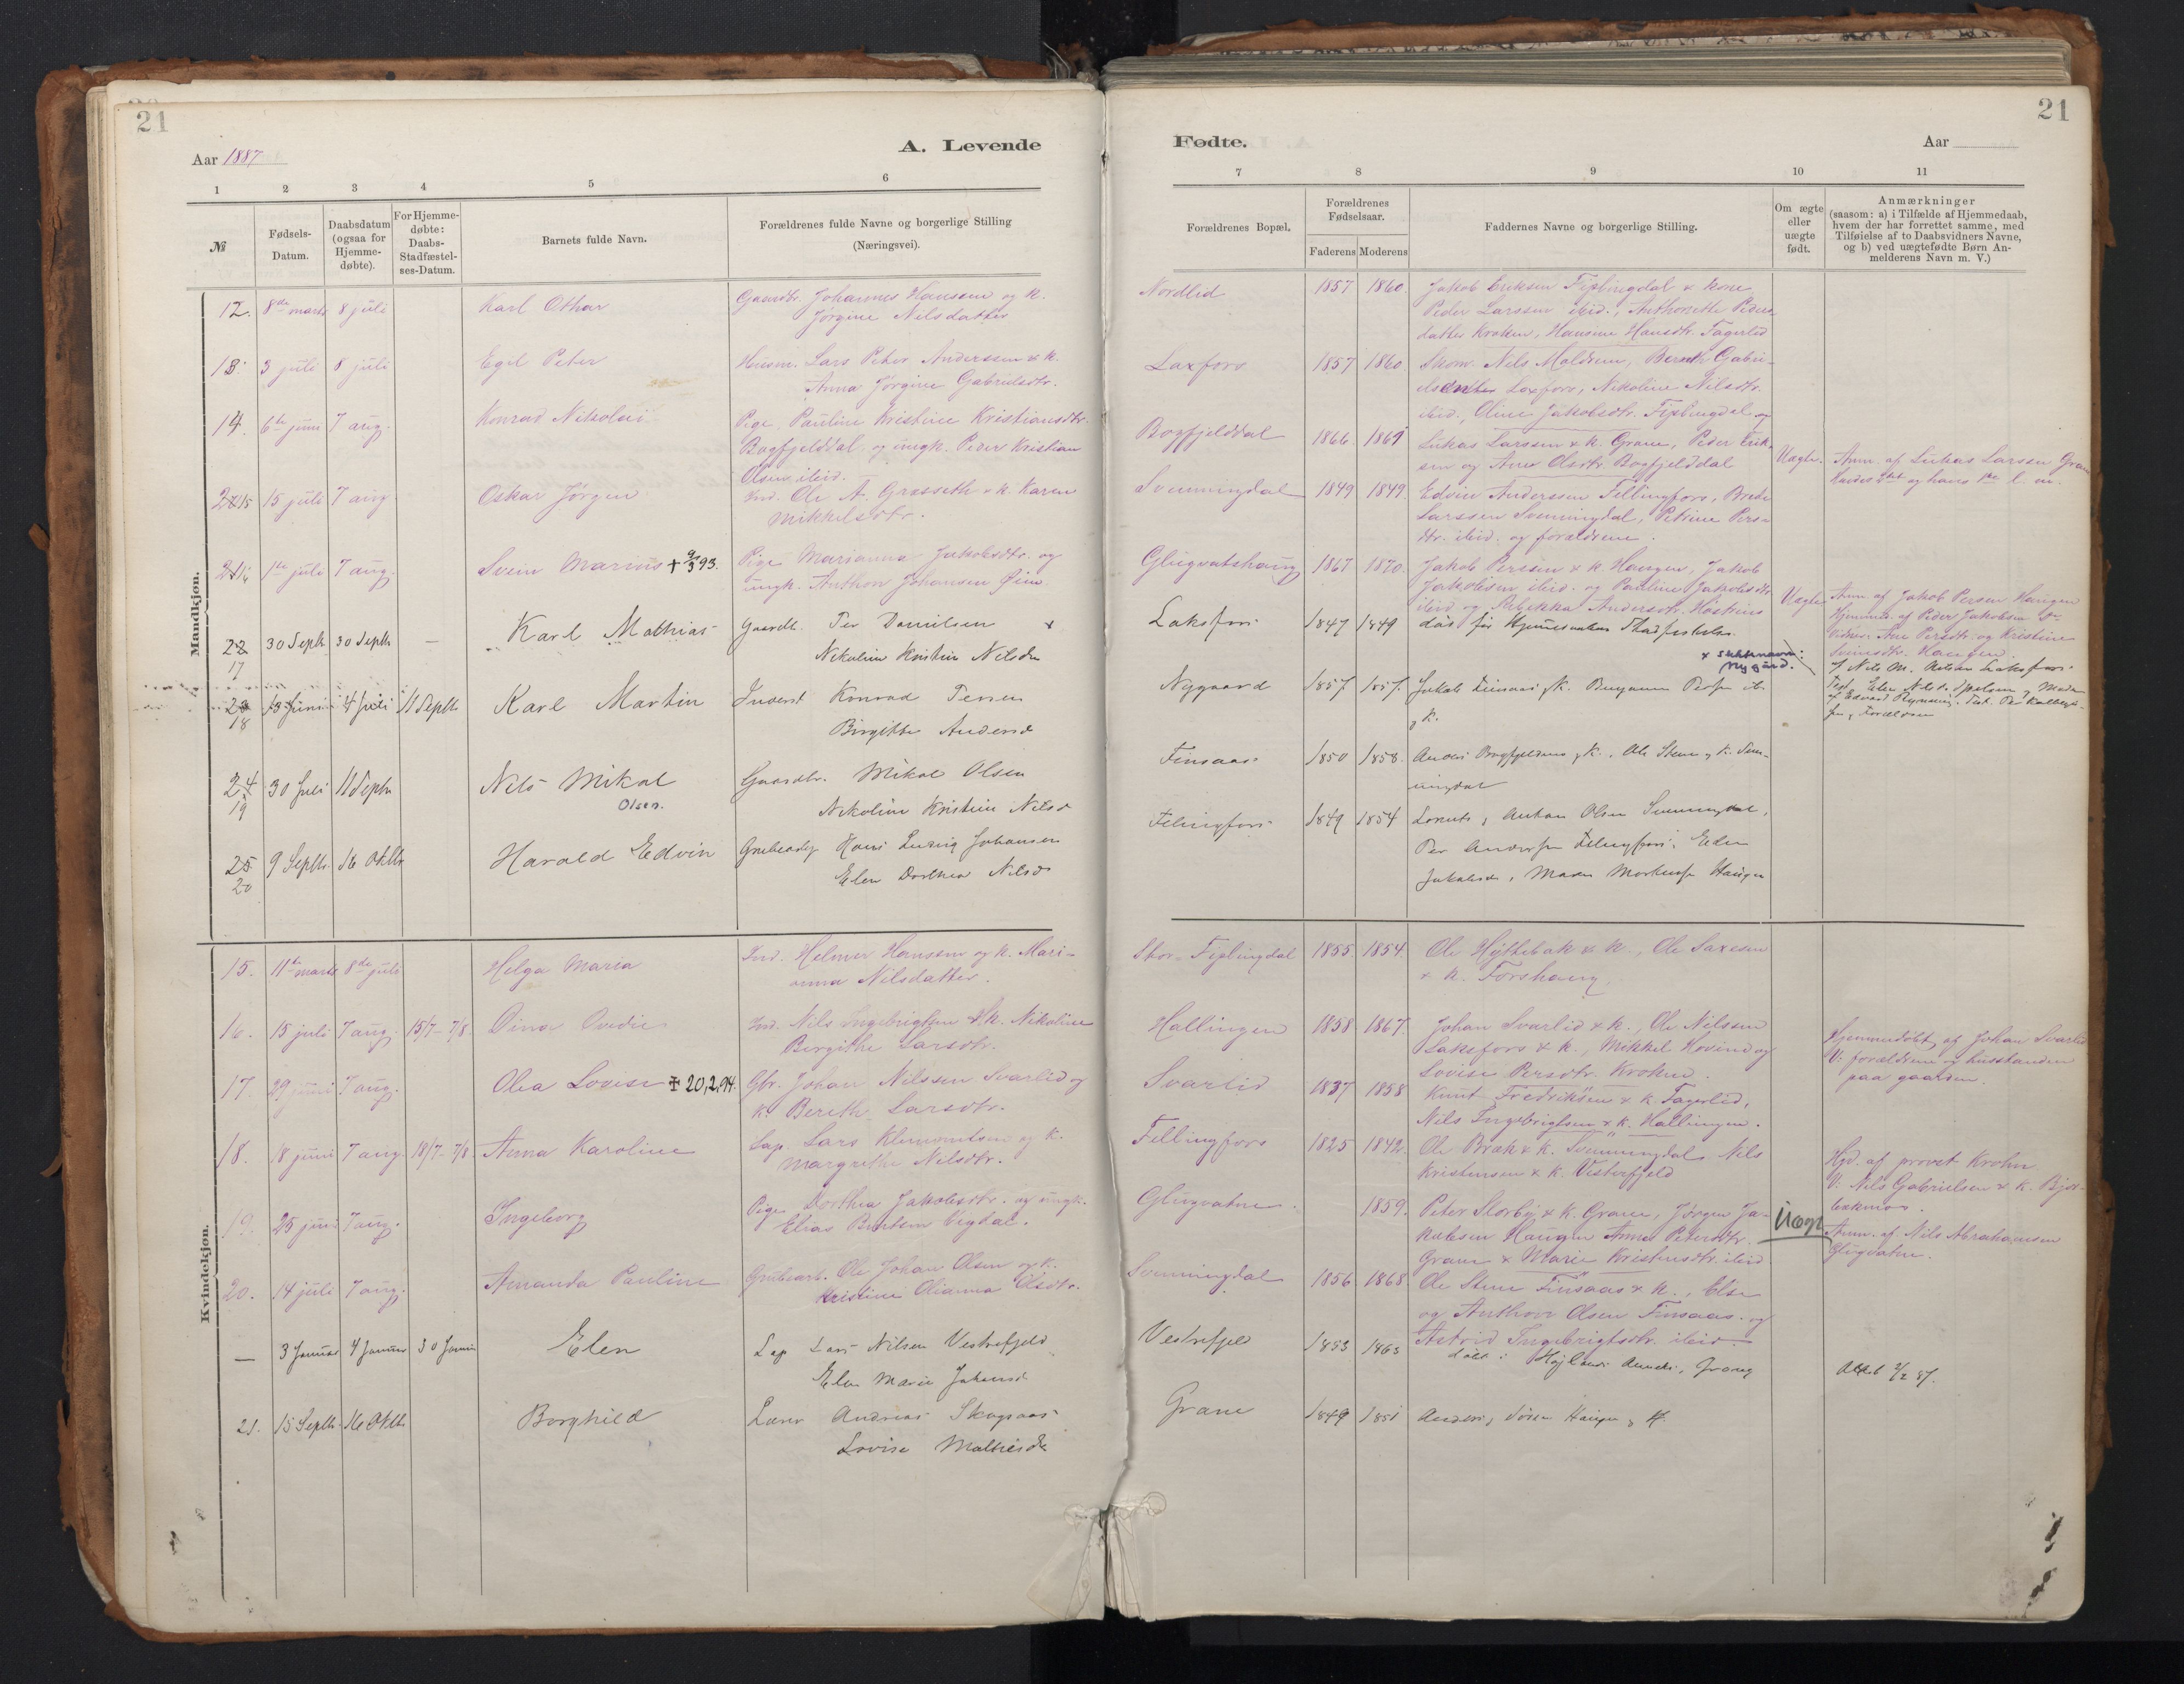 21
Aar 1887
A. Levende
1 2 3 4 5 6
№
Fødsels-
Datum.
Daabsdatum
(ogsaa for
Hjemme-
døbte).
For Hjemme-
døbte:
Daabs-
Stadfæstel-
ses-Datum.
Barnets fulde Navn.
Forældrenes fulde Navne og borgerlige Stilling
(Næringsvei).
Mandkjøn.
12. 8de marts 8 juli Karl Othar Gaardbr. Johannes Hanssen og k.
Jørgine Nilsdatter
13. 3 juli 8 juli Egil Peter Husm. Lars Peter Anderssen & k.
Anna Jørgine Gabrielsdtr.
14. 6te juni 7 aug. Konrad Nikolai Pige Pauline Kristine Kristiansdtr.
Bogfjelddal og ungk. Peder Kristian
Olsen ibid.
15 15 juli 7 aug. Oskar Jørgen Ind. Ole A. Grasseth & k. Karen
Mikkelsdtr.
16 1te juli 7 aug. Svein Marius + 9/3 93. Pige Marianna Jakobsdtr. og
ungk. Anthon Johansen Øim.
22 30 Septb 30 Septb — Karl Mathias Gaardb. Per Danielsen x
17 Nikoline Kristine Nilsdtr
23 13 Juni 4 Juli 11 Septb Karl Martin Inderst Konrad Persen
18 Birgitte Andersd
24 30 Juli 11 Septb Nils Mikal Gaardbr. Mikal Olsen
19 Olsen. Nikoline Kristine Nilsd
25 9 Septbr. 16 Oktbr Harald Edvin Grubearb Hans Ludvig Johansen
20 Elen Dorthea Nilsd
Kvindekjøn.
15. 11te marts 8de juli Helga Maria Ind. Helmer Hanssen og k. Mari-
anna Nilsdatter.
16. 15 juli 7 aug. 15/7 - 7/8 Dina Ovedie Ind. Nils Ingebrigtsen & k. Nikoline
Bergithe Larsdtr.
17 29 juni 7 aug. Olea Lovise ‡ 20,2,94. Gbr. Johan Nilssen Svarlid og
k. Bereth Larsdtr.
18. 18 juni 7 aug. 18/7 - 7/8 Anna Karoline Lap Lars Klemmentsen og k.
Margrethe Nilsdtr.
19. 25 juni 7 aug. Ingeborg Pige Dorthea Jakobsdtr. og ungk.
Elias Berntsen Vegdal.
20. 14 juli 7 aug. Amanda Pauline Grubearb. Ole Johan Olsen og k.
Kristine Olianna Olsdtr.
— 3 Januar 4 Januar 30 Januar Elen Lap Lars Nilsen Vestrefjeld
Elen Marie Johansd
21. 15 Septb. 16 Oktb. Borghild Lærer Andreas Skogsaas
Lovise Mathiesd
21
Fødte.
Aar
7 8 9 10 11
Forældrenes Bopæl.
Forældrenes
Fødselsaar.
Faderens Moderens
Faddernes Navne og borgerlige Stilling.
Om ægte
eller
uægte
født.
Anmærkninger
(saasom: a) i Tilfælde af Hjemmedaab,
hvem der har forrettet samme, med
Tilføielse af to Daabsvidners Navne,
og b) ved uægtefødte Børn An-
melderens Navn m. V.)
Nordlid 1857 1860. Jakob Eriksen Fiplingdal & kone
Peder Larssen ibid., Anthonette Peders-
datter Kroken, Hansine Hansdtr. Fagerlid
Laxfors 1857 1860 Skom. Nils Maldsem, Bernth Gabri-
elsen Laxfors, Nikoline Nilsdtr.
ibid., Oline Jakobsdtr. Fiplingdal og
Bogfjelddal 1866. 1861 Lukas Larssen & k. Grane, Peder Erik-
sen og Ane Olsdtr. Bogfjelddal Uægte. Anm. af Lukas Larssen Grane
Svenningdal 1849 1849. Edvin Anderssen Fellingfors, Brede
Larssen Svenningdal, Petrine Pers-
dtr. ibid. og forældrene.
Glugvatshaug 1867 1870. Jakob Perssen & k. Haugen, Jakob
Jakobsen ibid. og Pauline Jakobsdtr
ibid. og Rebekka Andersdtr. Uægte Anm. af Jakob Persen Haugen
Hjemmed. af Peder Jakobsen
Vidner: Ane Persdtr. og Kristine
Sveinsdtr. Haugen.
Laksfors 1847 1849 døs før Hjemmedaabens Stadfæstelse.
x slektsnavn:
Nygård.
Nygaard 1857. 1857. Jakob Finsaas & K. Benjamin Persen ib.
& K.
Finsaas 1850 1858. Anders Bogfjeldmo & K., Ole Stene & K. Svenningdal
Felingfors 1849 1854 Anton Olsen Svenningdal,
Per Andersen Felingfors, Elen
Jakobsd, Maren Haugen
Stor-Fiplingdal 1855 1854. Ole Hyttebak & k., Ole Saxesen
& k. Forshaug.
Hallingen 1858 1867. Johan Svarlid & k., Ole Nilssen
Laksfors & k., Mikkel Hovind og
Lovise Persdtr. Kroken. Hjemmedøbt af Johan Svarlid
V: forældrene og husstanden
paa gaarden.
Svarlid 1837 1858 Knut Fredriksen & k. Fagerlid,
Nils Ingebrigtsen & k. Hallingen.
Fellingfors 1825 1842. Ole Bræk & k. Svenningdal Nils
Kristensen & k. Vesterfjeld Hjd. af provst Krohn
V: Nils Gabrielsen & k. Bjor-
bækmo.
Glugvatne. 1859. Peter Storbji & k. Grane, Jørgen Ja-
kobsen Haugen Anna Petersdtr.
Grane & Marie Kristensdtr. ibid Uægt Anm. af Nils Abrahamsen
Glugvatne.
Svenningdal 1856 1868 Ole Stene Finsaas & k., Else
og Anthon Olsen Finsaas og
Astrid Ingebrigtsdtr. ibid.
Vestrefjeld 1853 1863 døbt i Højlands Annex, Grong Attest 2/2 87.
Grane 1849 1851 Anders, Haugen & K.